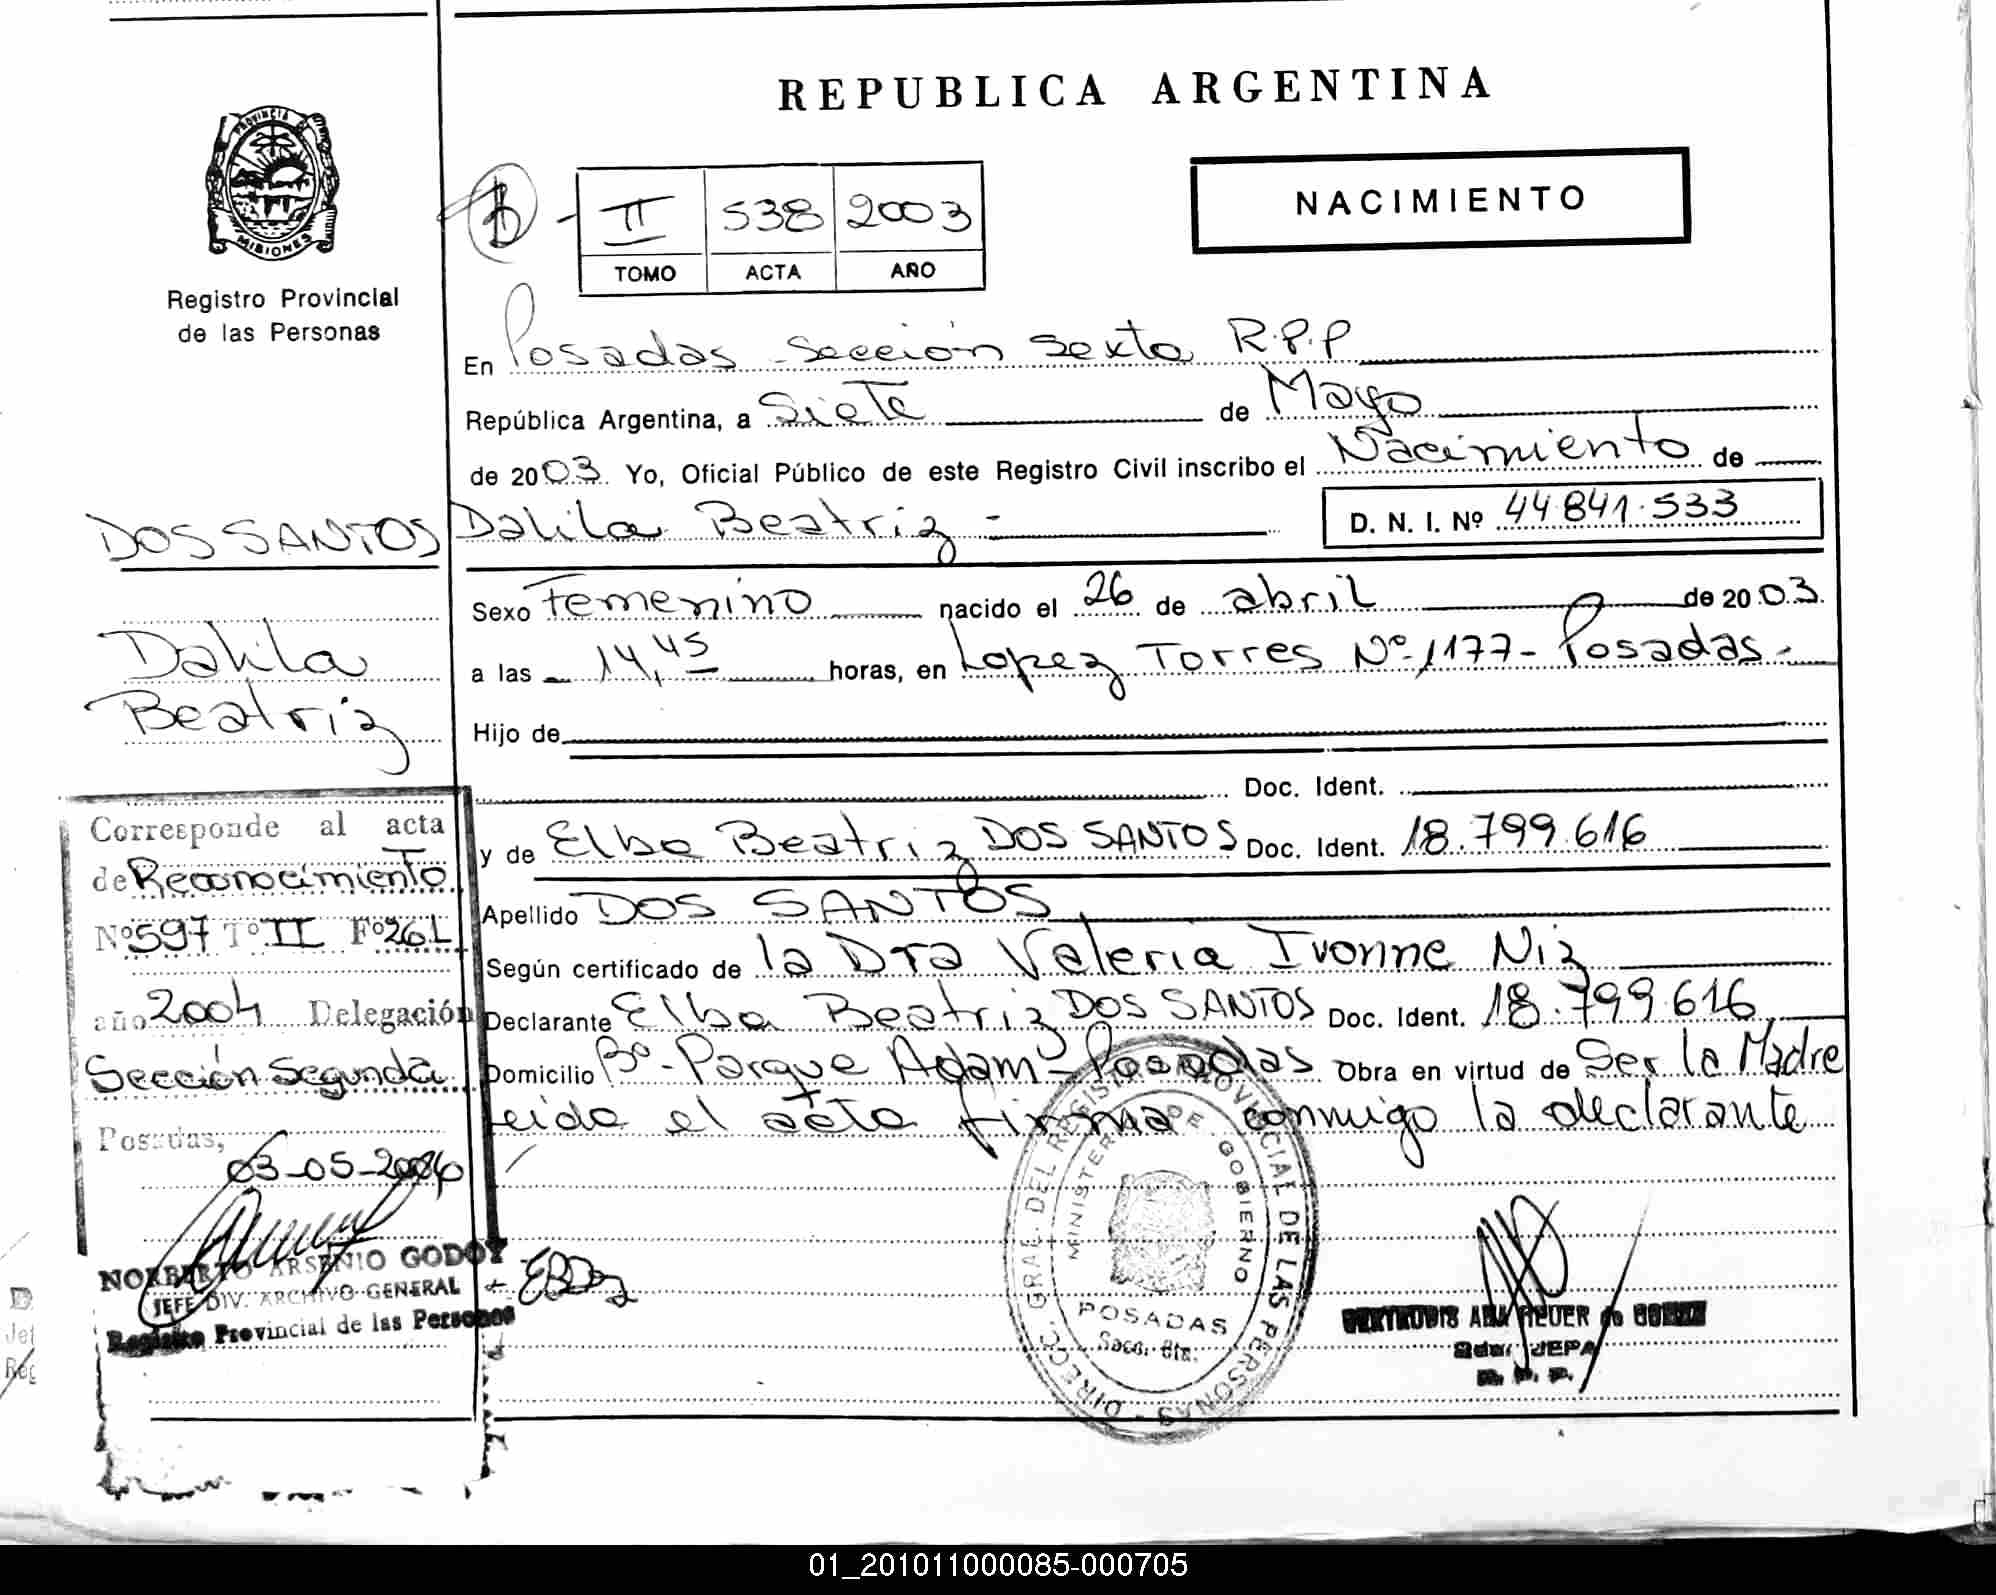 REPUBLICA ARGENTINA
PROVINCIA DE
MISIONES
Registro Provincial
de las Personas
II 538 2003
TOMO ACTA AÑO
NACIMIENTO
En Posadas Sección Sexta R.P.P
República Argentina, a Siete de Mayo
de 2003. Yo, Oficial Público de este Registro Civil inscribo el Nacimiento de
DOS SANTOS Dalila Beatriz
D. N. I. Nº 44.841.533
Dalila
Beatriz
Sexo Femenino nacido el 26 de abril de 2003.
a las 14,45 horas, en Lopez Torres Nº 1177 - Posadas -
Hijo de
Doc. Ident.
y de Elba Beatriz DOS SANTOS Doc. Ident. 18.799.616
Apellido DOS SANTOS
Según certificado de la Dra Valeria Ivonne Niz
Declarante Elba Beatriz DOS SANTOS Doc. Ident. 18.799.616
Domicilio Bº - Parque Adam - Posadas Obra en virtud de Ser la Madre
Leida el acta firma conmigo la declarante
Corresponde al acta
de Reconocimiento
Nº 597 Tº II Fº 261
año 2004 Delegación
Sección Segunda
Posadas,
03-05-2004
NORBERTO ARSENIO GODOY
JEFE DIV. ARCHIVO GENERAL
Registro Provincial de las Personas
DIRECC. GRAL. DEL REGISTRO PROVINCIAL DE LAS PERSONAS
MINISTERIO DE GOBIERNO
POSADAS
Secc. 6ta.
R. P. P.
01_201011000085-000705